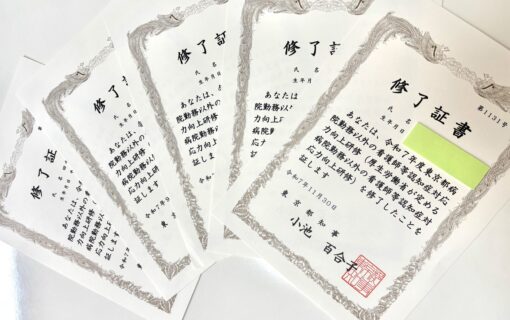 修了証
あなたは、
院勤務以外の
力向上研修
病院勤務以
応力向上研
証します
令和7
修了証
氏名
生年月日
あなたは、
院勤務以外の
力向上研修
病院勤務以外
応力向上研修
証します
令和7年
修了証
氏名
生年月
あなたは、
院勤務以外の
力向上研修
病院勤務以外
応力向上研
証します
令和7年
東京
修了証
氏名
生年月
あなたは
院勤務以
力向上
病院
応力
証します
修了証書
第1131号
氏名
生年月日
あなたは、令和7年度東京都病
院勤務以外の看護師等認知症対応
力向上研修(厚生労働省が定める
病院勤務以外の看護師等認知症対
応力向上研修)を修了したことを
証します
令和7年11月30日
東京都知事
小池 百合子